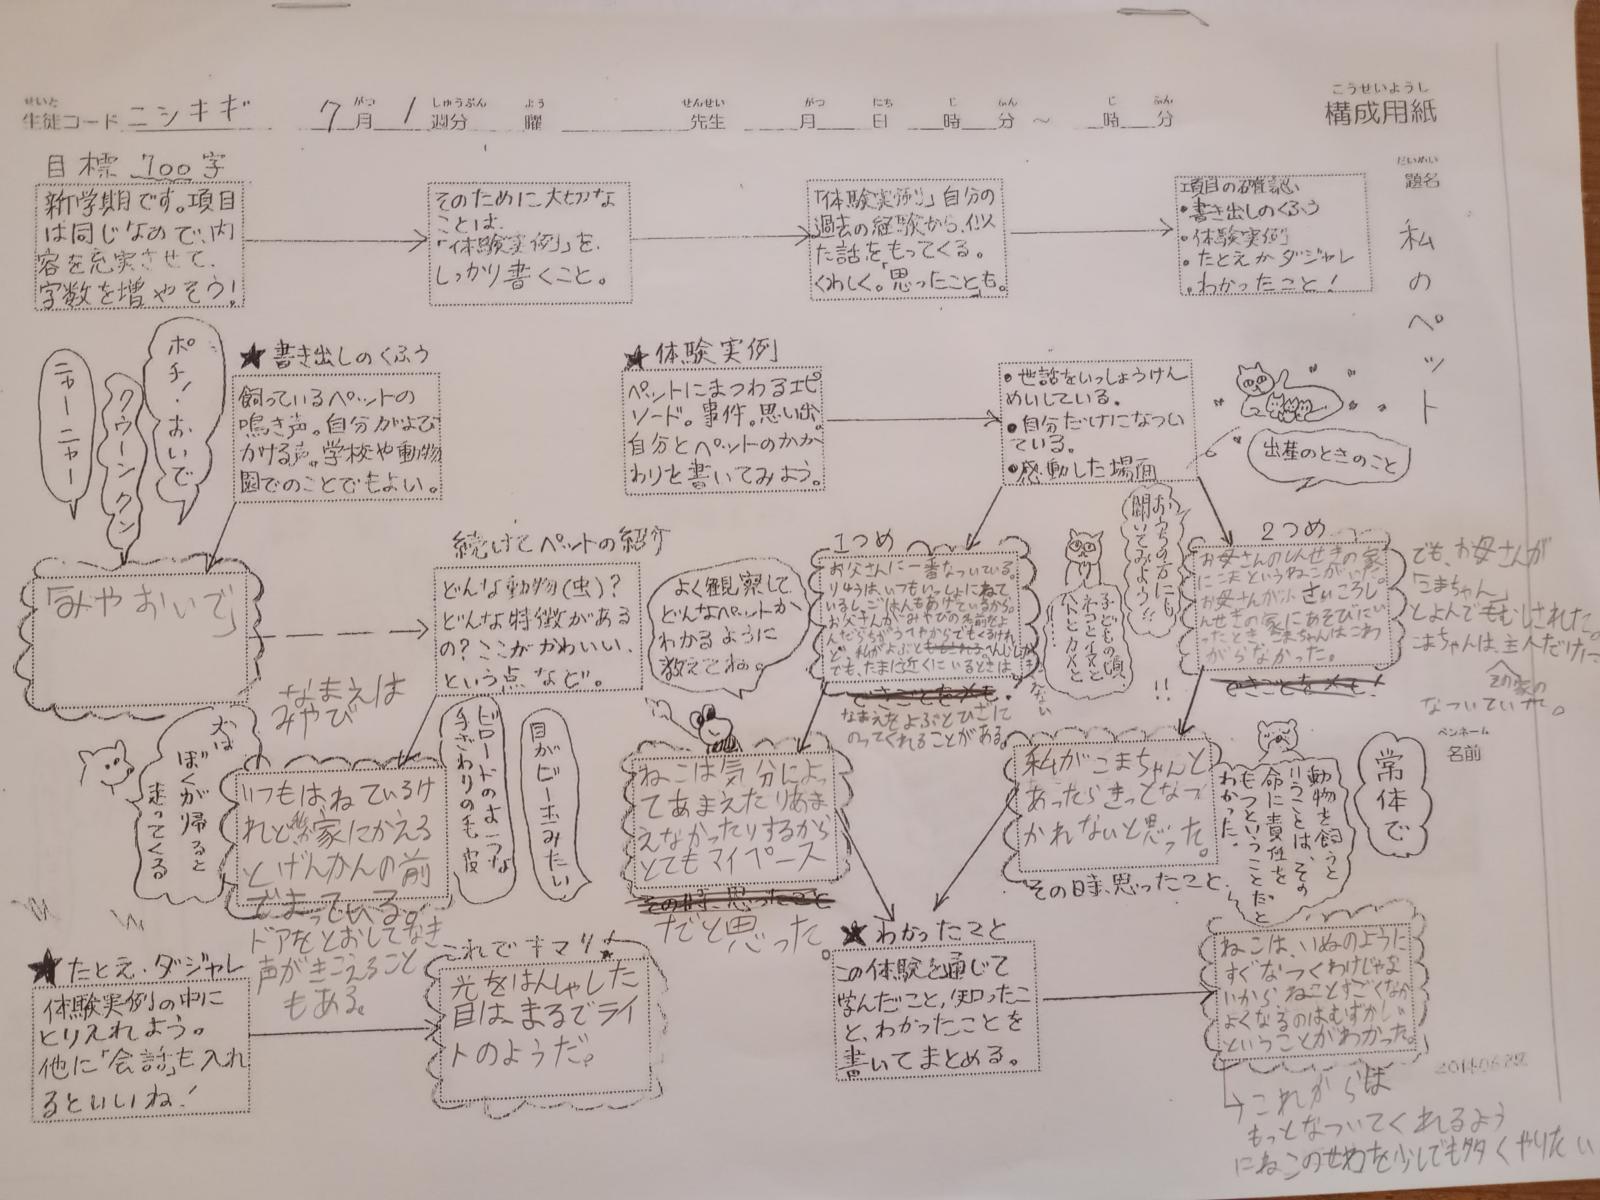 せいと
生徒コード ニシキギ 7月 1週分 曜 先生 月 日 時 分 ～ 時 分
がつ しゅうぶん よう せんせい がつ にち じ ふん じ ふん
こうせいようし
構成用紙
だいめい
題名
私のペット
目標 700字
新学期です。項目
は同じなので、内
容を充実させて、
字数を増やそう!
そのために大切な
ことは、
「体験実例」を、
しっかり書くこと。
「体験実例」自分の
過去の経験から、似
た話をもってくる。
くわしく。「思ったこと」も。
項目の確認
・書き出しのくふう
・体験実例
・たとえかダジャレ
・わかったこと!
ニャーニャー
クウーンクン
ポチ!おいで
★書き出しのくふう
飼っているペットの
鳴き声。自分がよび
かける声。学校や動物
園でのことでもよい。
★体験実例
ペットにまつわるエピ
ソード。事件。思い出。
自分とペットのかか
わりを書いてみよう。
・世話をいっしょうけん
めいしている。
・自分だけになつい
ている。
・感動した場面
出産のときのこと
「みやおいで」
続けてペットの紹介
どんな動物(虫)?
どんな特徴がある
の?ここがかわいい、
という点など。
よく観察して
どんなペットか
わかるように
教えてね。
なまえは
みやび
1つめ
お父さんに一番なついている。
りゆうは、いつもいっしょにねて
いるし、ごはんもあげているから。
お父さんがみやびの名前をよ
んだらちがうへやからでもくるけれ
ど、私がよぶと
でも、たまに近くにいるときは
なまえをよぶとひざに
のってくれることがある。
おうちの方にも
聞いてみよう!!
子どもの頃
ネコとイヌと
ハトとカメと
…!!
2つめ
お母さんのしんせきの家
にこまというねこがいた。
お母さんが小さいころし
んせきの家にあそびにい
ったとき、こまちゃんはこわ
がらなかった。
でも、お母さんが
「こまちゃん」
とよんでもむしされた。
こまちゃんは、主人だけに
その家の
なついていた。
ペンネーム
名前
犬は
ぼくが帰ると
走ってくる
いつもは、ねているけ
れど私が家にかえる
とげんかんの前
でまっている。
ドアをとおしてなき
声がきこえること
もある。
ビロードのような
手ざわりの毛皮
目がビー玉みたい
ねこは気分によっ
てあまえたりあま
えなかったりするから
とてもマイペース
だと思った。
私がこまちゃんと
あったらきっとなつ
かれないと思った。
その時、思ったこと
動物を飼うと
いうことは、その
命に責任を
もつということだと
わかった。
常体で
★たとえ・ダジャレ
体験実例の中に
とりいれよう。
他に「会話」も入れ
るといいね!
これでキマリ!
光をはんしゃした
目は、まるでライ
トのようだ。
★わかったこと
この体験を通じて
学んだこと、知ったこ
と、わかったことを
書いてまとめる。
ねこは、いぬのように
すぐなつくわけじゃな
いから、ねことすごくなか
よくなるのはむずかしい
ということがわかった。
→これからは
もっとなついてくれるよう
にねこのせわを少しでも多くやりたい